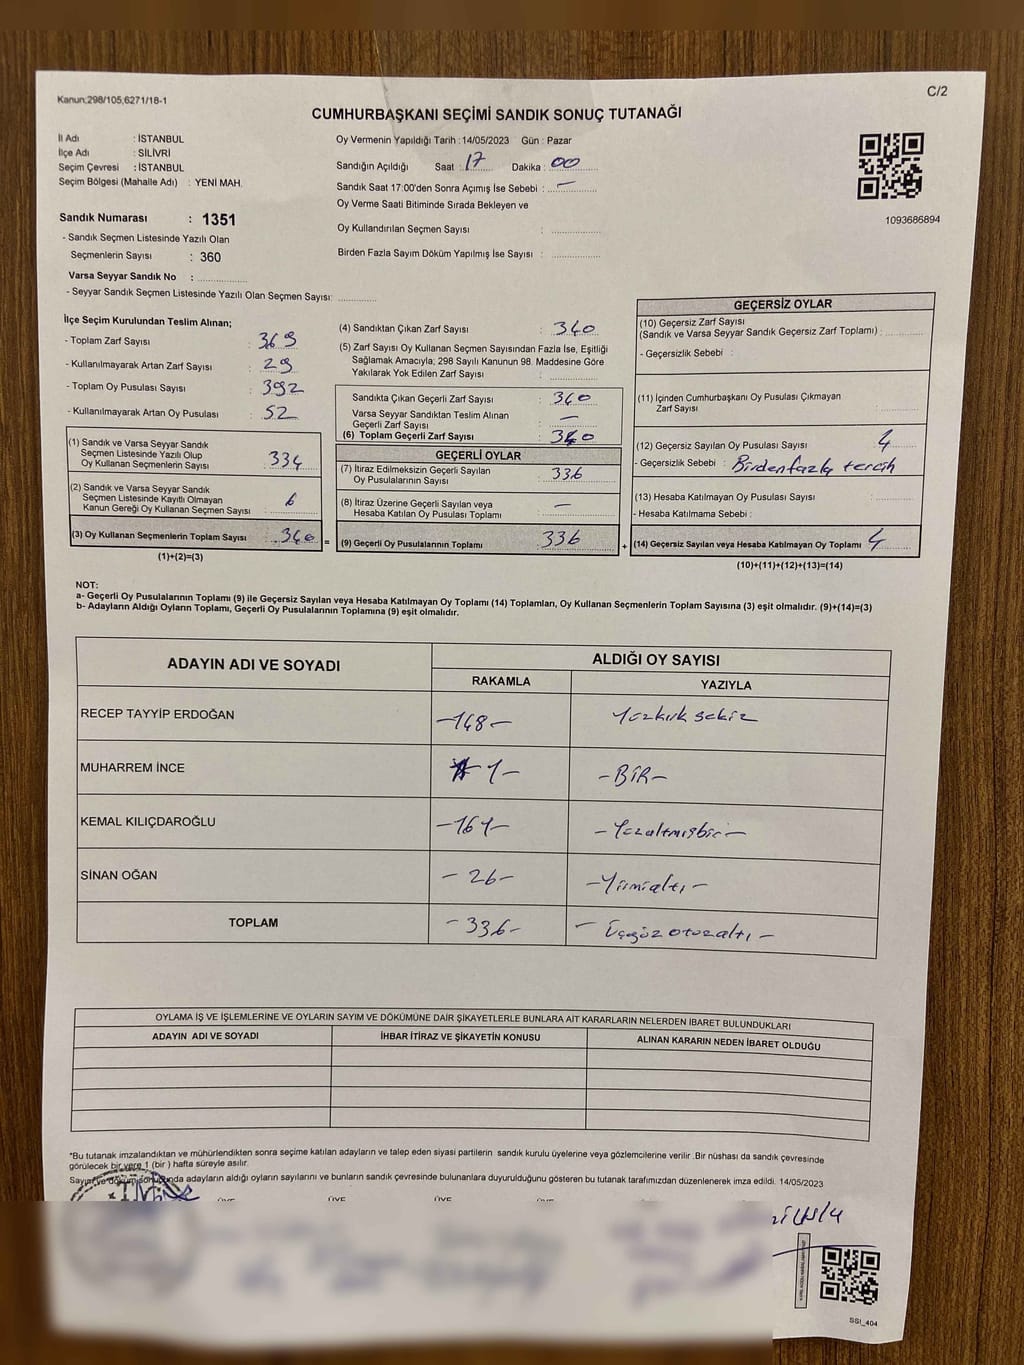 Kanun:298/105,6271/18-1
C/2
CUMHURBAŞKANI SEÇİMİ SANDIK SONUÇ TUTANAĞI
İl Adı : İSTANBUL
İlçe Adı : SİLİVRİ
Seçim Çevresi : İSTANBUL
Seçim Bölgesi (Mahalle Adı) : YENİ MAH.
Oy Vermenin Yapıldığı Tarih :14/05/2023 Gün : Pazar
Sandığın Açıldığı Saat : 17 Dakika : 00
Sandık Saat 17:00'den Sonra Açımış İse Sebebi : —
Oy Verme Saati Bitiminde Sırada Bekleyen ve
Oy Kullandırılan Seçmen Sayısı :
Birden Fazla Sayım Döküm Yapılmış İse Sayısı :
1093686894
Sandık Numarası : 1351
- Sandık Seçmen Listesinde Yazılı Olan
Seçmenlerin Sayısı : 360
Varsa Seyyar Sandık No :
- Seyyar Sandık Seçmen Listesinde Yazılı Olan Seçmen Sayısı:
İlçe Seçim Kurulundan Teslim Alınan;
- Toplam Zarf Sayısı : 369
- Kullanılmayarak Artan Zarf Sayısı : 29
- Toplam Oy Pusulası Sayısı : 392
- Kullanılmayarak Artan Oy Pusulası : 52
(1) Sandık ve Varsa Seyyar Sandık
Seçmen Listesinde Yazılı Olup
Oy Kullanan Seçmenlerin Sayısı : 334
(2) Sandık ve Varsa Seyyar Sandık
Seçmen Listesinde Kayıtlı Olmayan
Kanun Gereği Oy Kullanan Seçmen Sayısı : 6
(3) Oy Kullanan Seçmenlerin Toplam Sayısı : 340 =
(1)+(2)=(3)
(4) Sandıktan Çıkan Zarf Sayısı : 340
(5) Zarf Sayısı Oy Kullanan Seçmen Sayısından Fazla İse, Eşitliği
Sağlamak Amacıyla; 298 Sayılı Kanunun 98. Maddesine Göre
Yakılarak Yok Edilen Zarf Sayısı :
Sandıkta Çıkan Geçerli Zarf Sayısı : 340
Varsa Seyyar Sandıktan Teslim Alınan
Geçerli Zarf Sayısı : —
(6) Toplam Geçerli Zarf Sayısı : 340
GEÇERLİ OYLAR
(7) İtiraz Edilmeksizin Geçerli Sayılan
Oy Pusulalarının Sayısı : 336
(8) İtiraz Üzerine Geçerli Sayılan veya
Hesaba Katılan Oy Pusulası Toplamı : —
(9) Geçerli Oy Pusulalarının Toplamı : 336 +
GEÇERSİZ OYLAR
(10) Geçersiz Zarf Sayısı
(Sandık ve Varsa Seyyar Sandık Geçersiz Zarf Toplamı) :
- Geçersizlik Sebebi :
(11) İçinden Cumhurbaşkanı Oy Pusulası Çıkmayan
Zarf Sayısı :
(12) Geçersiz Sayılan Oy Pusulası Sayısı : 4
- Geçersizlik Sebebi : Birden fazla tercih
(13) Hesaba Katılmayan Oy Pusulası Sayısı :
- Hesaba Katılmama Sebebi :
(14) Geçersiz Sayılan veya Hesaba Katılmayan Oy Toplamı : 4
(10)+(11)+(12)+(13)=(14)
NOT:
a- Geçerli Oy Pusulalarının Toplamı (9) ile Geçersiz Sayılan veya Hesaba Katılmayan Oy Toplamı (14) Toplamları, Oy Kullanan Seçmenlerin Toplam Sayısına (3) eşit olmalıdır. (9)+(14)=(3)
b- Adayların Aldığı Oyların Toplamı, Geçerli Oy Pusulalarının Toplamına (9) eşit olmalıdır.
ADAYIN ADI VE SOYADI
ALDIĞI OY SAYISI
RAKAMLA
YAZIYLA
RECEP TAYYİP ERDOĞAN -148- Yüzkırk sekiz
MUHARREM İNCE 1- -BİR-
KEMAL KILIÇDAROĞLU -161- -Yüzaltmışbir-
SİNAN OĞAN -26- -Yirmialtı-
TOPLAM -336- - Üçyüz otuzaltı -
OYLAMA İŞ VE İŞLEMLERİNE VE OYLARIN SAYIM VE DÖKÜMÜNE DAİR ŞİKAYETLERLE BUNLARA AİT KARARLARIN NELERDEN İBARET BULUNDUKLARI
ADAYIN ADI VE SOYADI
İHBAR İTİRAZ VE ŞİKAYETİN KONUSU
ALINAN KARARIN NEDEN İBARET OLDUĞU
*Bu tutanak imzalandıktan ve mühürlendikten sonra seçime katılan adayların ve talep eden siyasi partilerin sandık kurulu üyelerine veya gözlemcilerine verilir .Bir nüshası da sandık çevresinde
görülecek bir yere 1 (bir ) hafta süreyle asılır.
Sayım ve döküm sonucunda adayların aldığı oyların sayılarını ve bunların sandık çevresinde bulunanlara duyurulduğunu gösteren bu tutanak tarafımızdan düzenlenerek imza edildi. 14/05/2023
ÜYE ÜYE ÜYE ÜYE
SSI_404